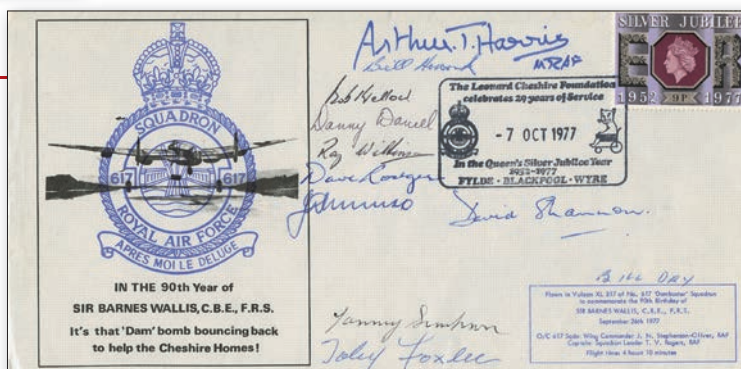 SQUADRON
617 617
ROYAL AIR FORCE
APRES MOI LE DELUGE
IN THE 90th Year of
SIR BARNES WALLIS, C.B.E., F.R.S.
It's that 'Dam' bomb bouncing back
to help the Cheshire Homes!
Arthur. T. Harris
MRAF
Bill Howard
Danny Daniel
Ray Wilkinson
Dave Rodger
David Shannon.
Tammy Simpson
Toby Foxlee
SILVER JUBILEE
E R
1952 9P 1977
The Leonard Cheshire Foundation
celebrates 29 years of Service
- 7 OCT 1977
In the Queen's Silver Jubilee Year
1952-1977
FYLDE · BLACKPOOL · WYRE
BILL DAY
Flown in Vulcan XL 317 of No. 617 'Dambuster' Squadron
to commemorate the 90th Birthday of
SIR BARNES WALLIS, C.B.E., F.R.S.
September 26th 1977
O/C 617 Sqdn Wing Commander J. N. Stephenson-Oliver, RAF
Captain: Squadron Leader T. V. Rogers, RAF
Flight time: 4 hours 10 minutes